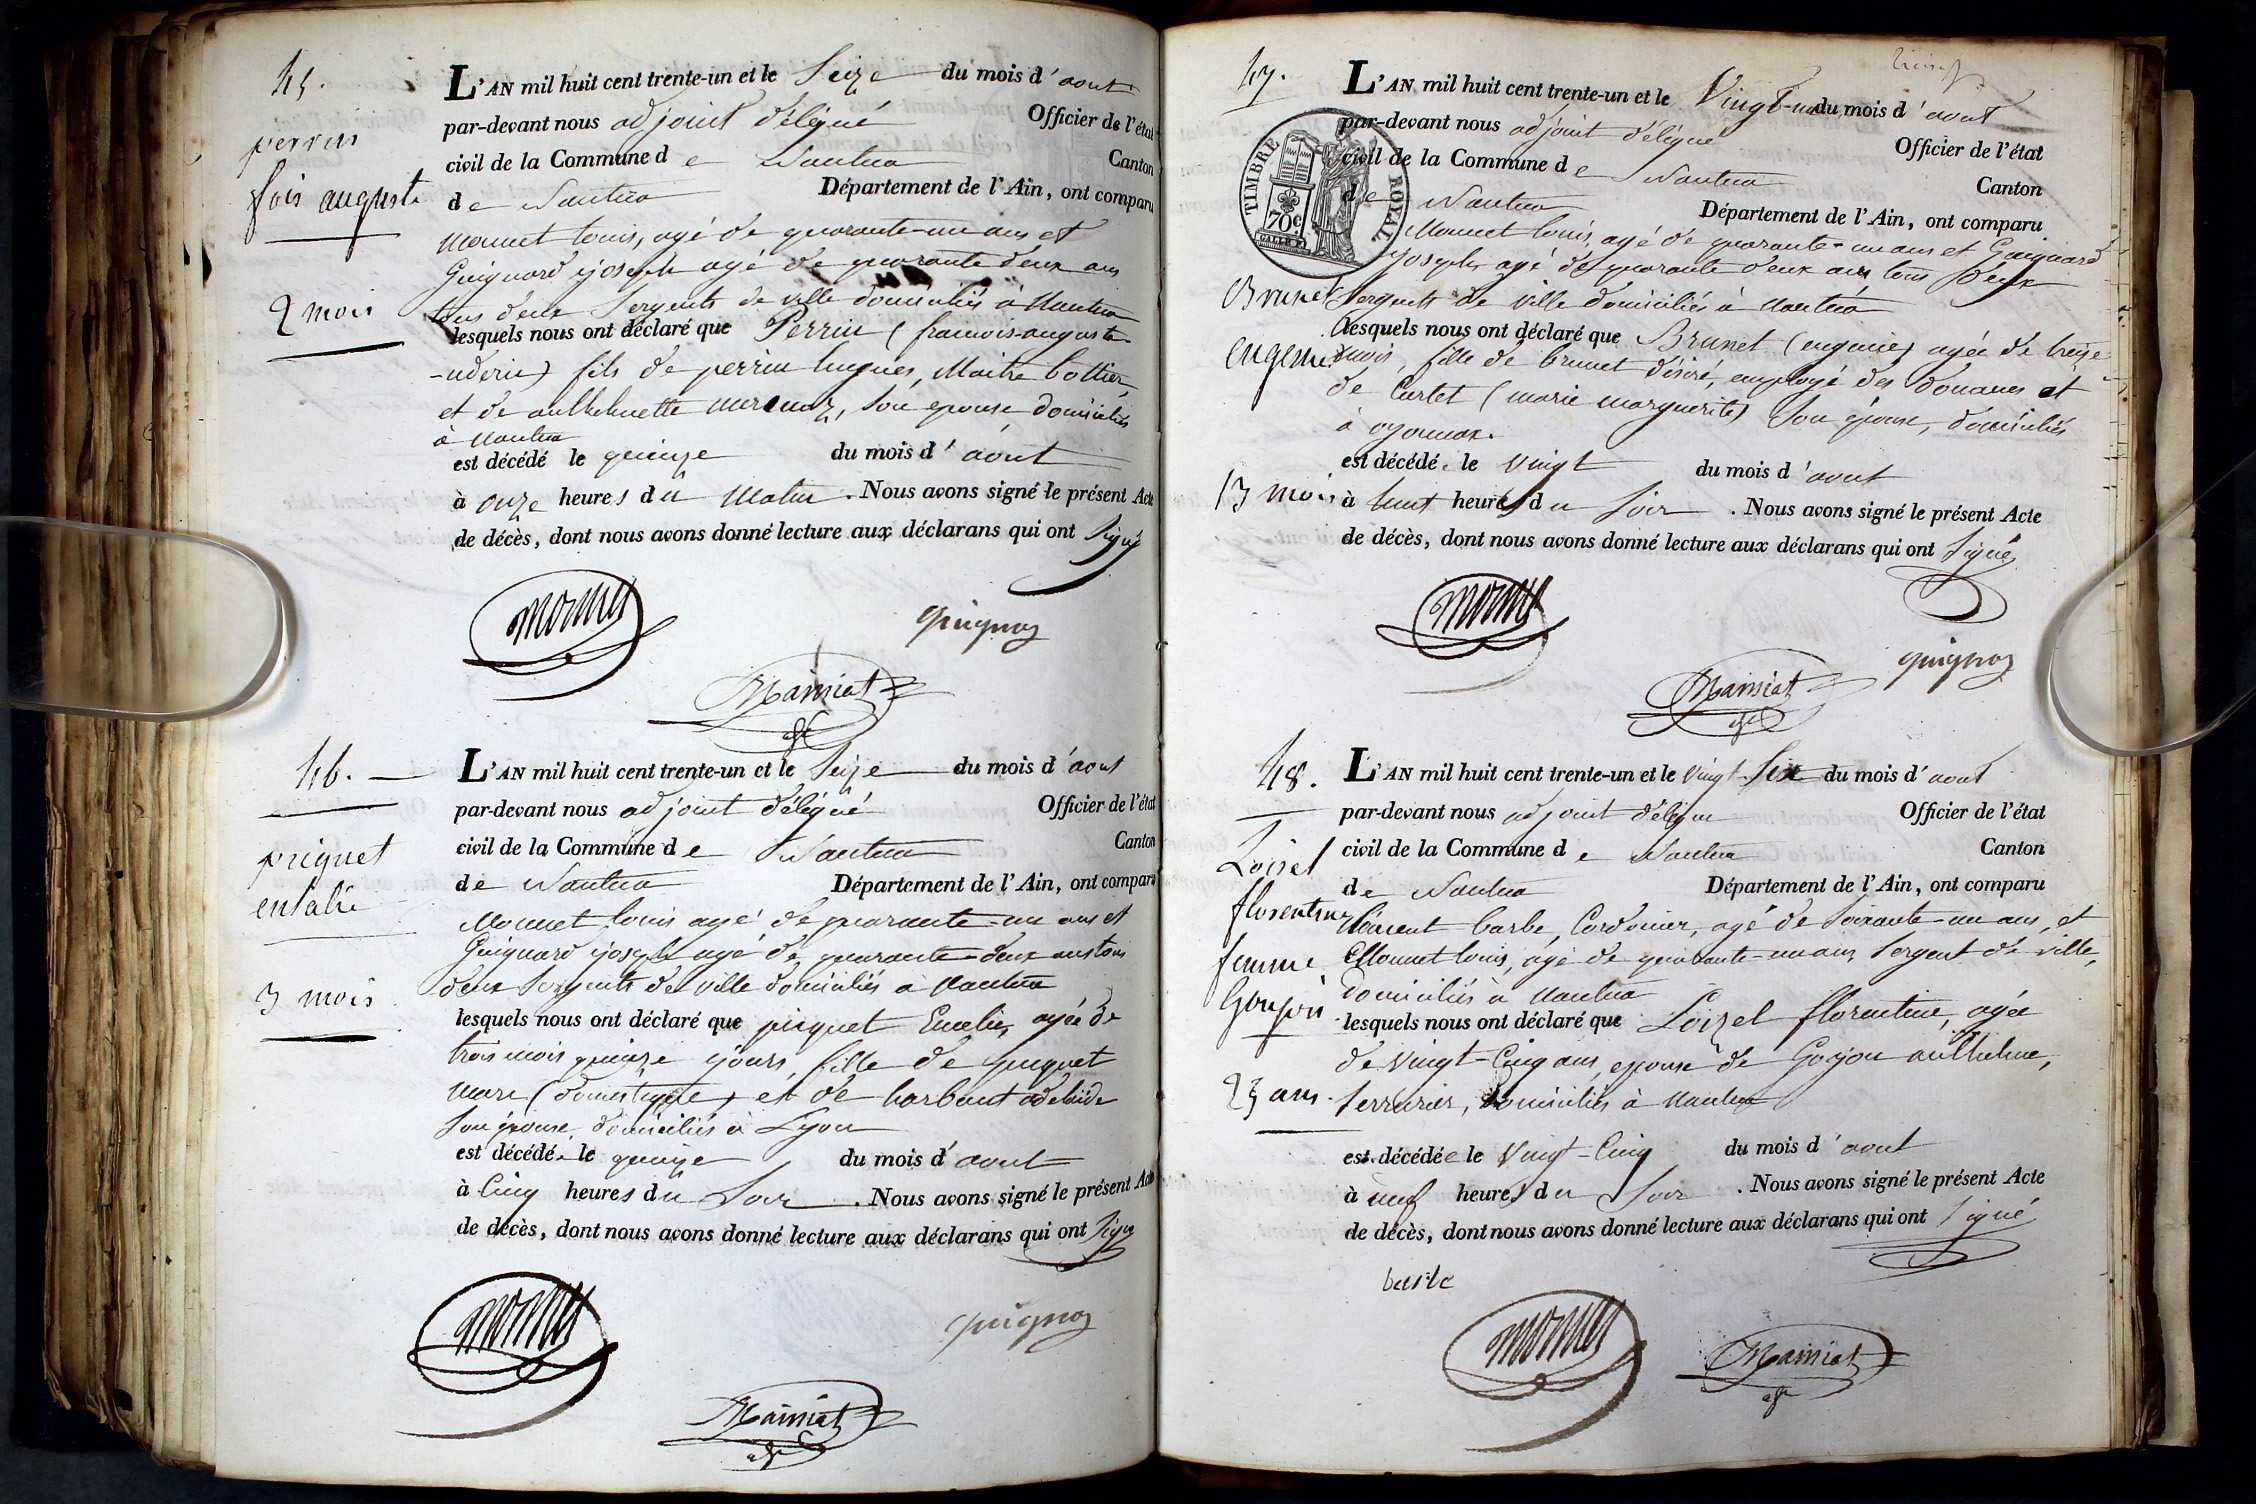 45.
perrin
fois auguste
2 mois
L'AN mil huit cent trente-un et le Seize du mois d'aout
par-devant nous adjoint délégué Officier de l'état
civil de la Commune de Nantua Canton
de Nantua Département de l'Ain, ont comparu
Monnet louis, agé de quarante-un ans et
Guignard joseph agé de quarante deux ans
tous deux Sergents de ville domiciliés à Nantua
lesquels nous ont déclaré que Perrin (francois-auguste-
fils de perrin hugues, Maitre bottier
et de anthelmette son epouse domiciliés
à Nantua
est décédé le quinze du mois d'aout
à onze heures du Matin. Nous avons signé le présent Acte
de décès, dont nous avons donné lecture aux déclarans qui ont signé
monnet
guignard
Mainiat
46.
priquet
emélie
3 mois
L'AN mil huit cent trente-un et le Seize du mois d'aout
par-devant nous adjoint délégué Officier de l'état
civil de la Commune de Nantua Canton
de Nantua Département de l'Ain, ont comparu
Monnet louis agé de quarante-un ans et
Guignard joseph agé de quarante-deux ans tous
deux Sergents de ville domiciliés à Nantua
lesquels nous ont déclaré que Emelie, agée de
trois mois quinze jours, fille de
(domestique) et de adelaide
son épouse domiciliés à Lyon
est décédé le quinze du mois d'aout
à Cinq heures du Soir. Nous avons signé le présent Acte
de décès, dont nous avons donné lecture aux déclarans qui ont signé
monnet
guignard
Mainiat
47.
Brunet
eugenie
13 mois
TIMBRE ROYAL
70c
L'AN mil huit cent trente-un et le Vingt-un du mois d'aout
par-devant nous adjoint délégué Officier de l'état
civil de la Commune de Nantua Canton
de Nantua Département de l'Ain, ont comparu
Monnet louis, agé de quarante-un ans et Guignard
joseph, agé de quarante deux ans tous deux
Sergents de ville domiciliés à Nantua
lesquels nous ont déclaré que Brunet (eugenie) agée de treize
mois, fille de brunet désiré, employé des douanes et
de Curtet (marie marguerite) son épouse, domiciliés
à oyonnax.
est décédé le Vingt du mois d'aout
à huit heures du Soir. Nous avons signé le présent Acte
de décès, dont nous avons donné lecture aux déclarans qui ont Signé
monnet
guignard
Mainiat
48.
Loizel
florentine
femme
Goujon
25 ans.
L'AN mil huit cent trente-un et le Vingt-Six du mois d'aout
par-devant nous adjoint délégué Officier de l'état
civil de la Commune de Nantua Canton
de Nantua Département de l'Ain, ont comparu
barbe, Cordonier, agé de soixante-un ans, et
Monnet louis, agé de quarante-un ans, Sergent de ville,
domiciliés à Nantua
lesquels nous ont déclaré que Loizel florentine, agée
de Vingt-Cinq ans, epouse de Gojon anthelme,
Serrurier, domiciliés à Nantua
est décédée le Vingt-Cinq du mois d'aout
à neuf heures du Soir. Nous avons signé le présent Acte
de décès, dont nous avons donné lecture aux déclarans qui ont signé
monnet
Mainiat